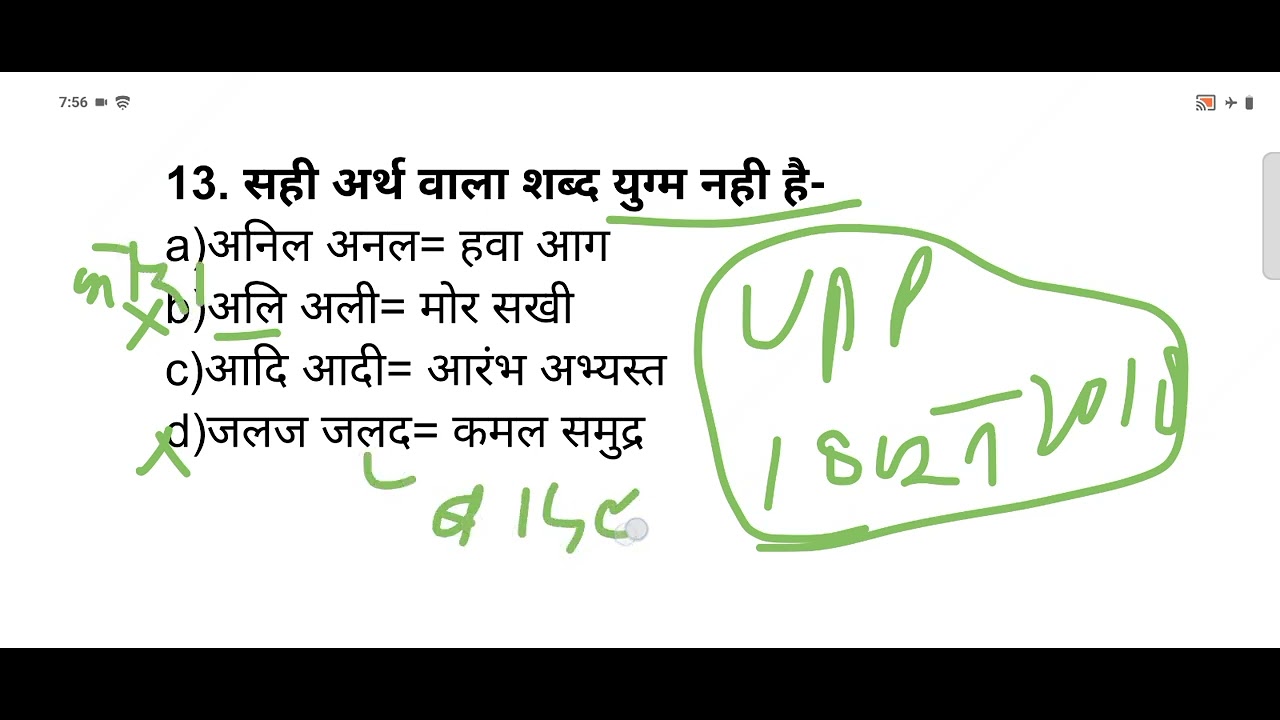 7:56
13. सही अर्थ वाला शब्द युग्म नही है-
a)अनिल अनल= हवा आग
b)अलि अली= मोर सखी
c)आदि आदी= आरंभ अभ्यस्त
d)जलज जलद= कमल समुद्र
UPP
2018